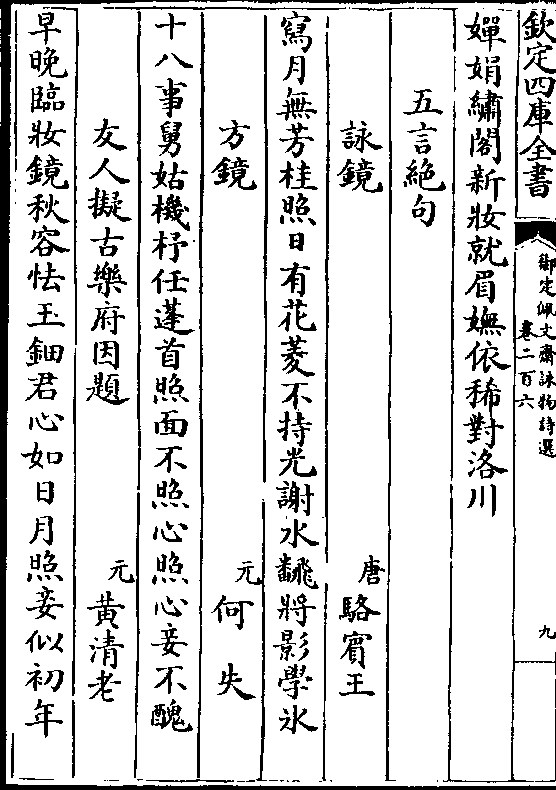 欽定四庫全書
御定佩文齋詠物詩選
卷二百六
九
嬋娟繡閣新妝就眉嫵依稀對洛川
五言絕句
詠鏡 唐 駱賓王
寫月無芳桂照日有花菱不持光謝水翻將影學冰
方鏡 元 何失
十八事舅姑機杼任蓬首照面不照心照心妾不醜
友人擬古樂府因題 元 黃清老
早晚臨妝鏡秋容怯玉鈿君心如日月照妾似初年